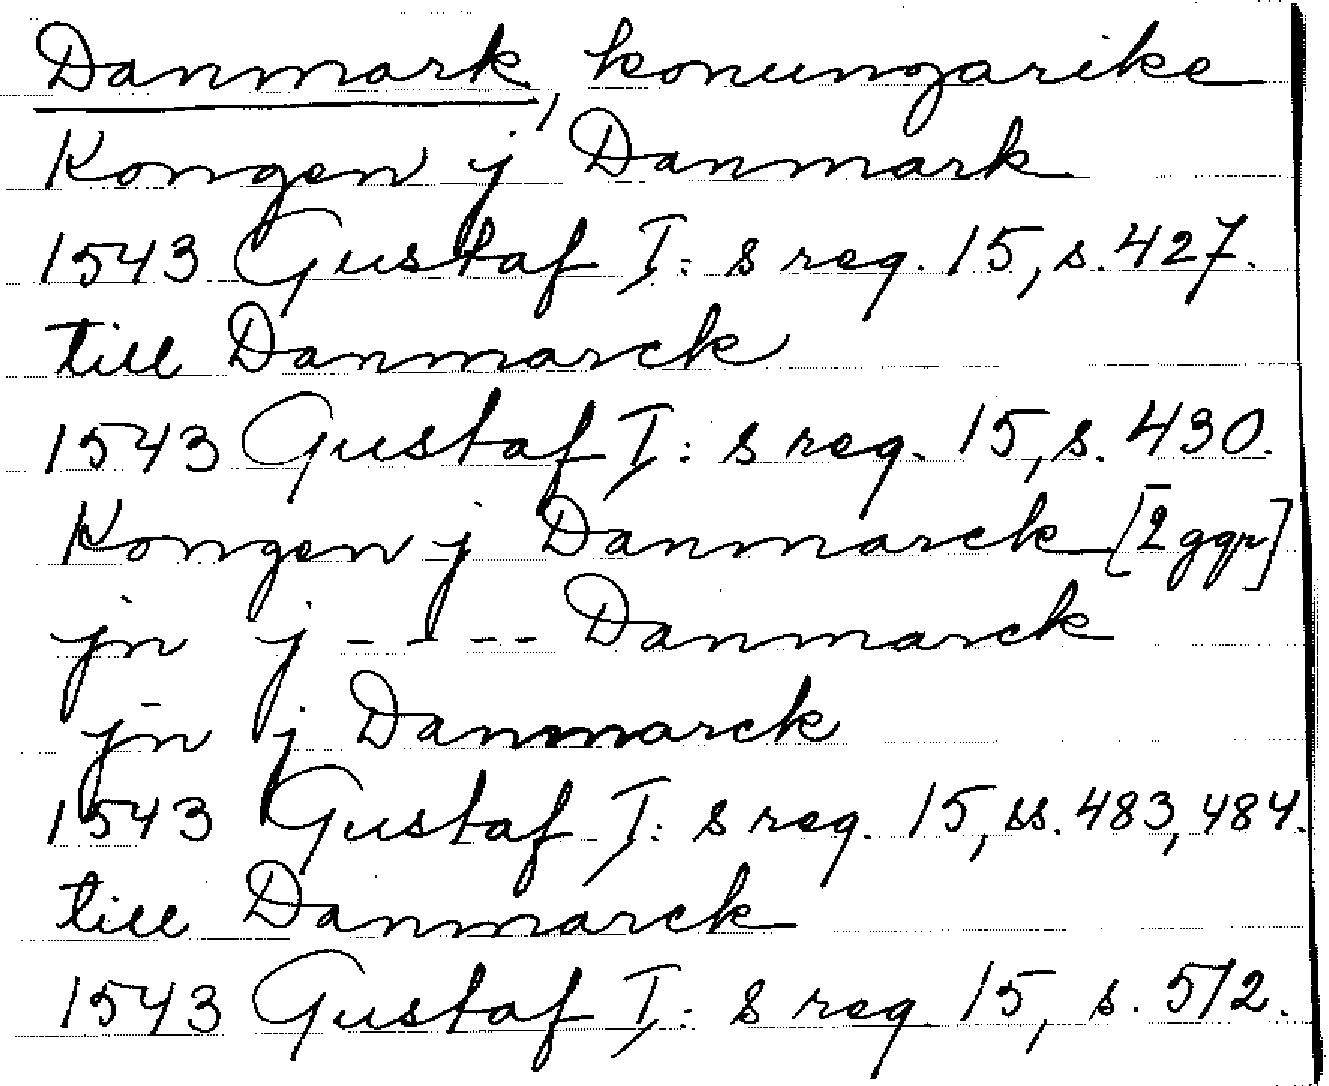 Danmark, konungarike
Kongen j Danmark
1543 Gustaf I:s reg. 15, s. 427.
till Danmarck
1543 Gustaf I:s reg. 15, s. 430.
Kongen j Danmarck [2 ggr]
jn j - - - - Danmarck
jn j Danmarck
1543 Gustaf I:s reg. 15, ss. 483, 484.
till Danmarck
1543 Gustaf I:s reg 15, s. 512.